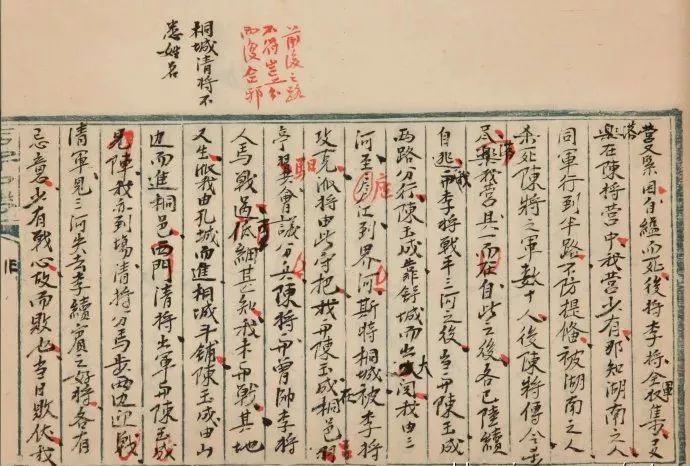 前後之路
不符豈
桐城清將不
悉姓名
營又緊因自縊而死後將李將全軍收集又
落在陳將營中我營少有那知湖南之人
同軍行到半路不防提備被湖南之人
殺死陳將之軍數十人後陳將傳令殺
盡落我營其一而在自此之後各已陸續
自逃我与李將戰平三河之後当与陳玉成
兩路分行陳玉成靠舒城而出大関我由三
河至庐江到界河斯時桐城被李將
攻克派將由此守把我与陳玉成在桐邑呂
亭翼會議分兵陳將与曾帥李將
人馬戰過底細甚知我未与戰其地
又生派我由孔城而進桐城斗鋪陳玉成由山
边而進桐邑西門清將出軍与陳玉成
見陣我亦到場清將分馬步四边迎戰
清軍見三河失去李續賓之好將各有
忌意少有戰心故而敗也当日敗依我